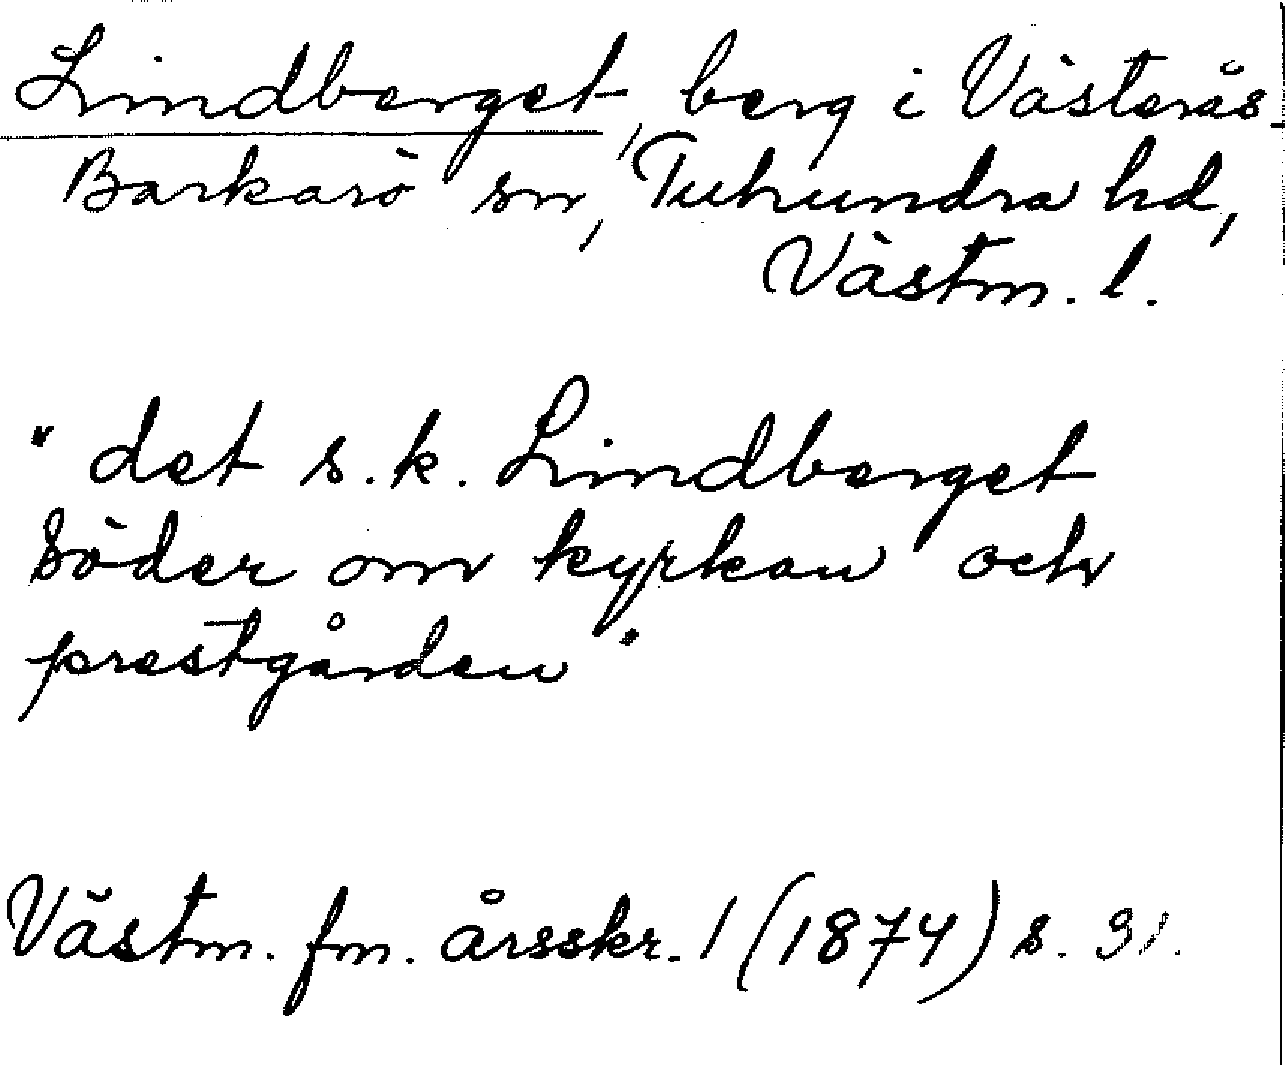 Lindberget, berg i Västerås-
Barkarö sn, Tuhundra hd,
Västm. l.
"det s.k. Lindberget
söder om kyrkan och
prestgården"
Västm. fm. årsskr. 1 (1874) s. 91.